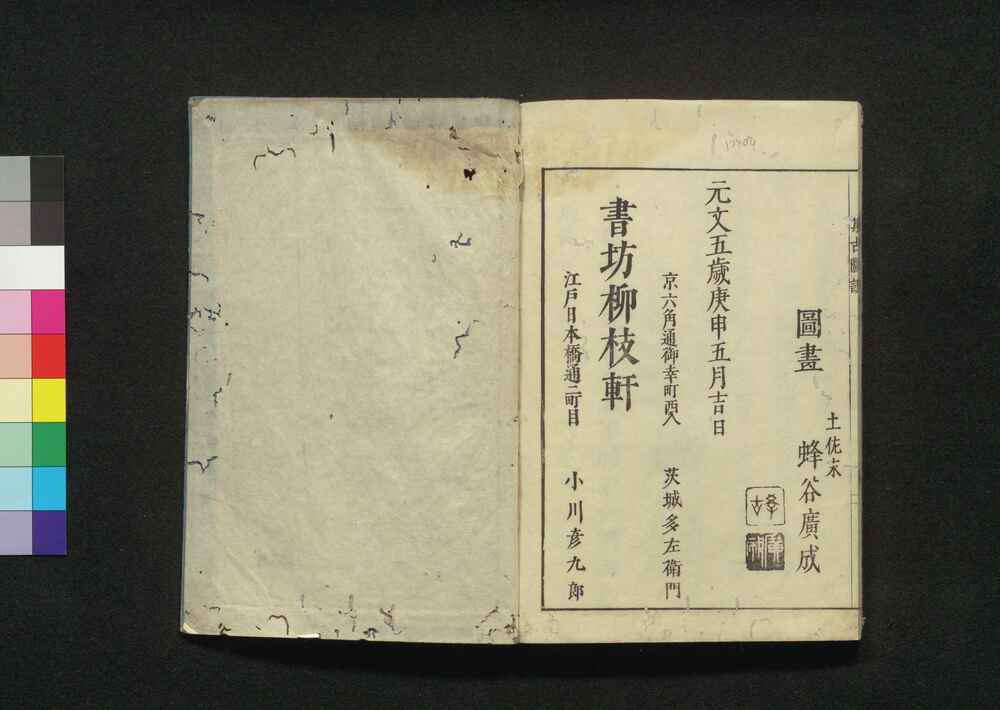 圖畫
土佐末
蜂谷廣成
元文五歳庚申五月吉日
京六角通御幸町西入
茨城多左衛門
書坊柳枝軒
江戸日本橋通二町目
小川彦九郎